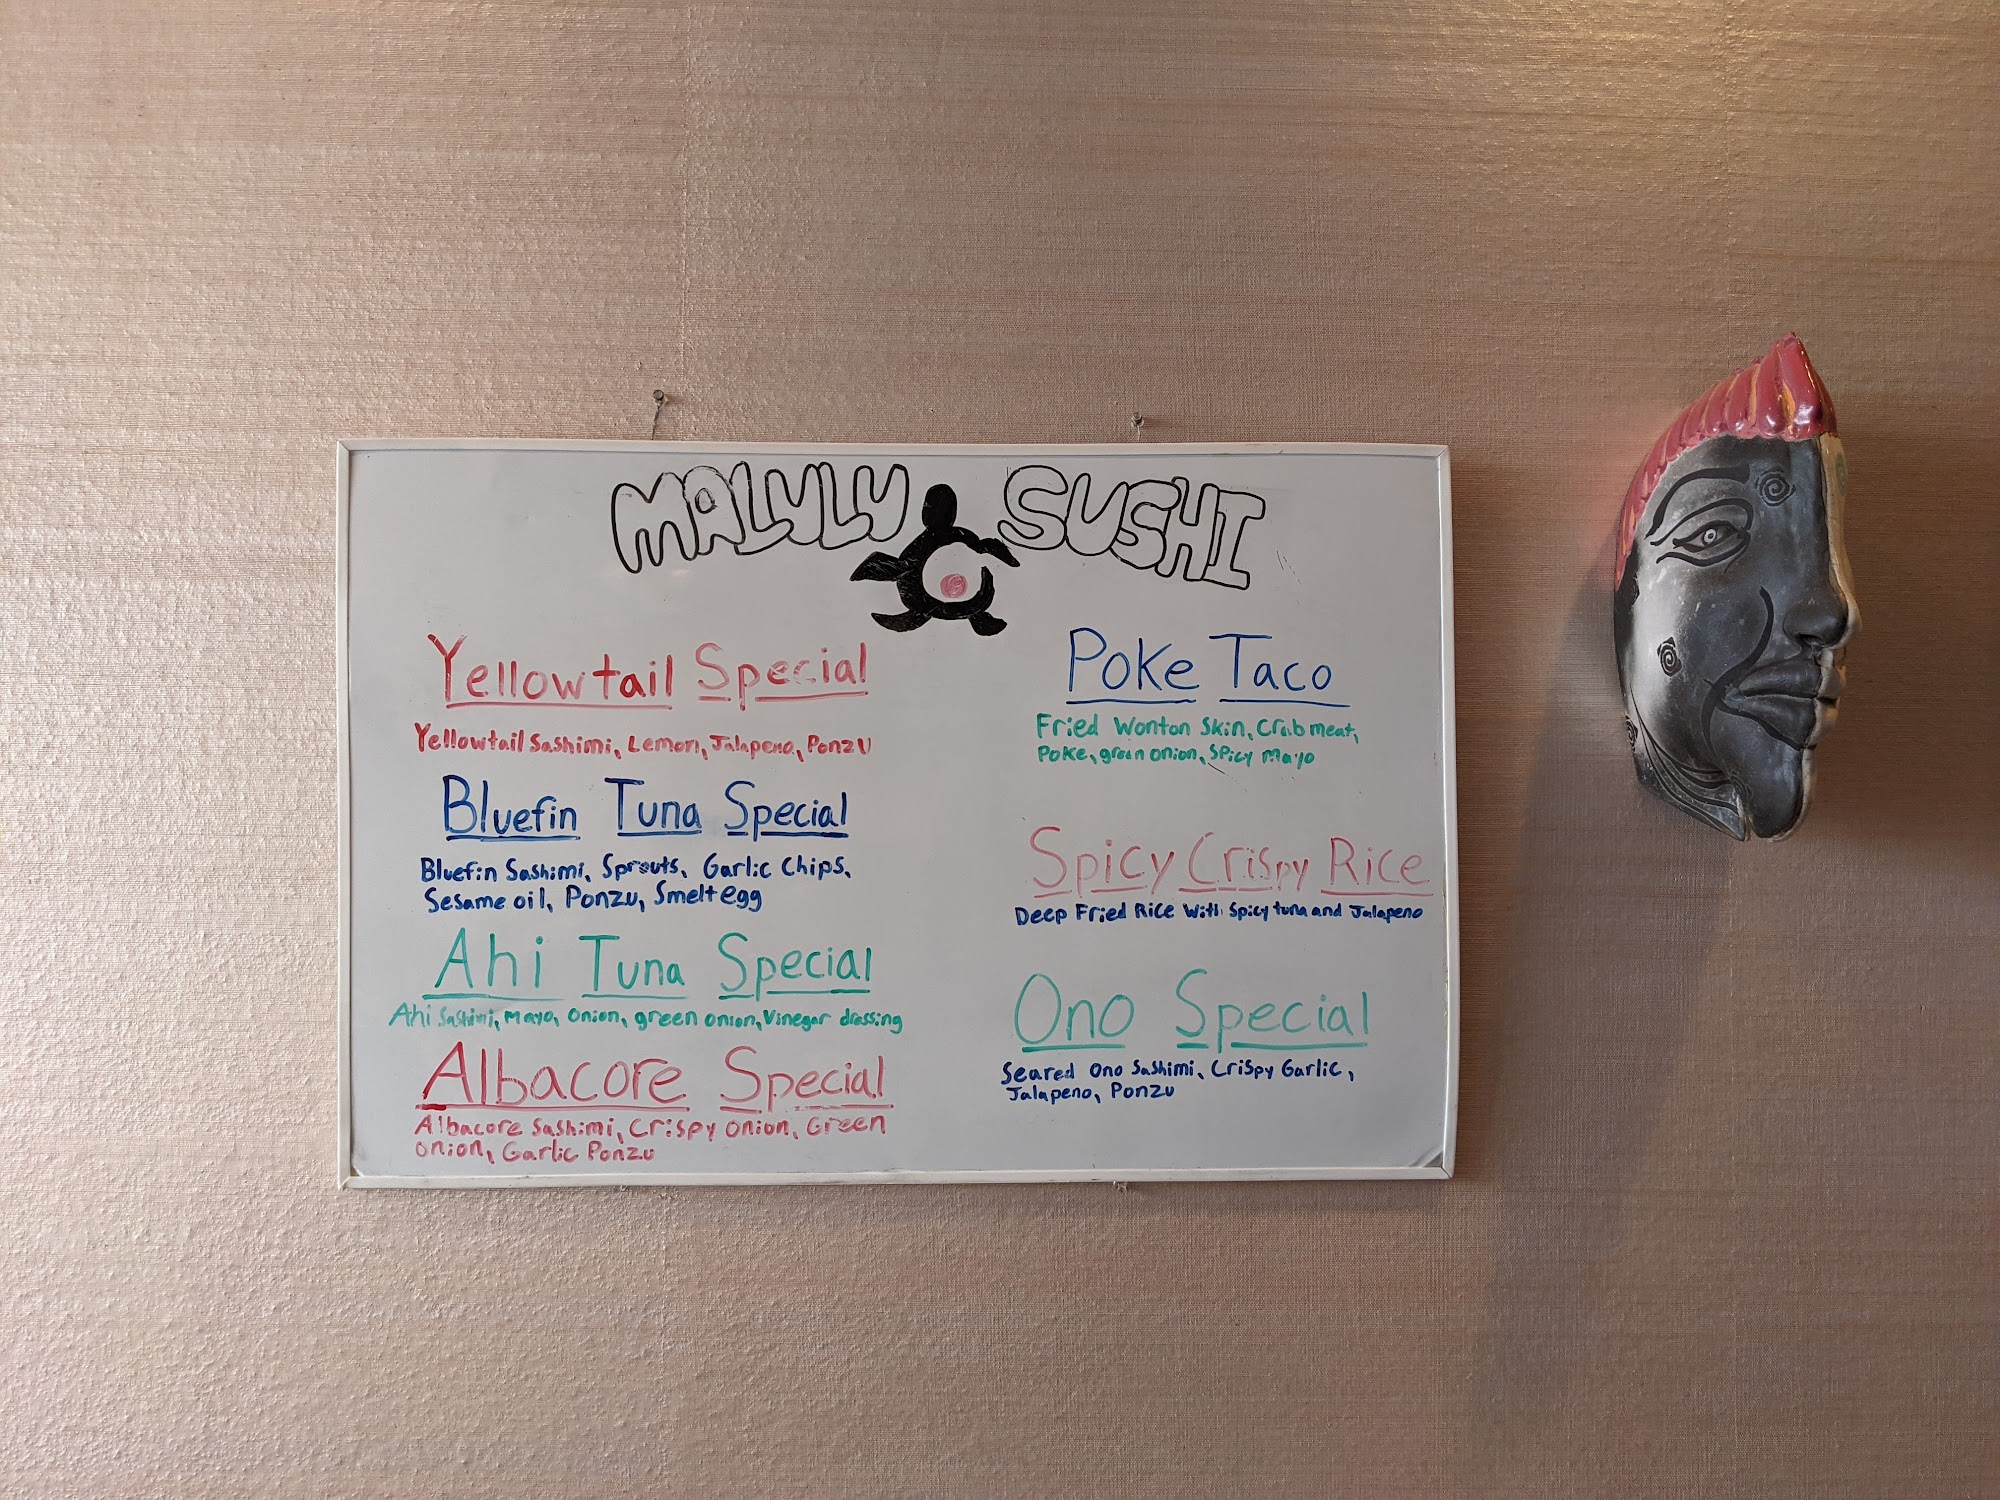 MALULU SUSHI
Yellowtail Special
Yellowtail Sashimi, Lemon, Jalapeno, Ponzu
Bluefin Tuna Special
Bluefin Sashimi, Sprouts, Garlic Chips,
Sesame oil, Ponzu, Smelt egg
Ahi Tuna Special
Ahi Sashimi, Mayo, Onion, green onion, Vinegar dressing
Albacore Special
Albacore Sashimi, Crispy Onion, Green
Onion, Garlic Ponzu
Poke Taco
Fried Wonton Skin, Crab meat,
Poke, green onion, Spicy Mayo
Spicy Crispy Rice
Deep Fried Rice With Spicy tuna and Jalapeno
Ono Special
Seared Ono Sashimi, Crispy Garlic,
Jalapeno, Ponzu